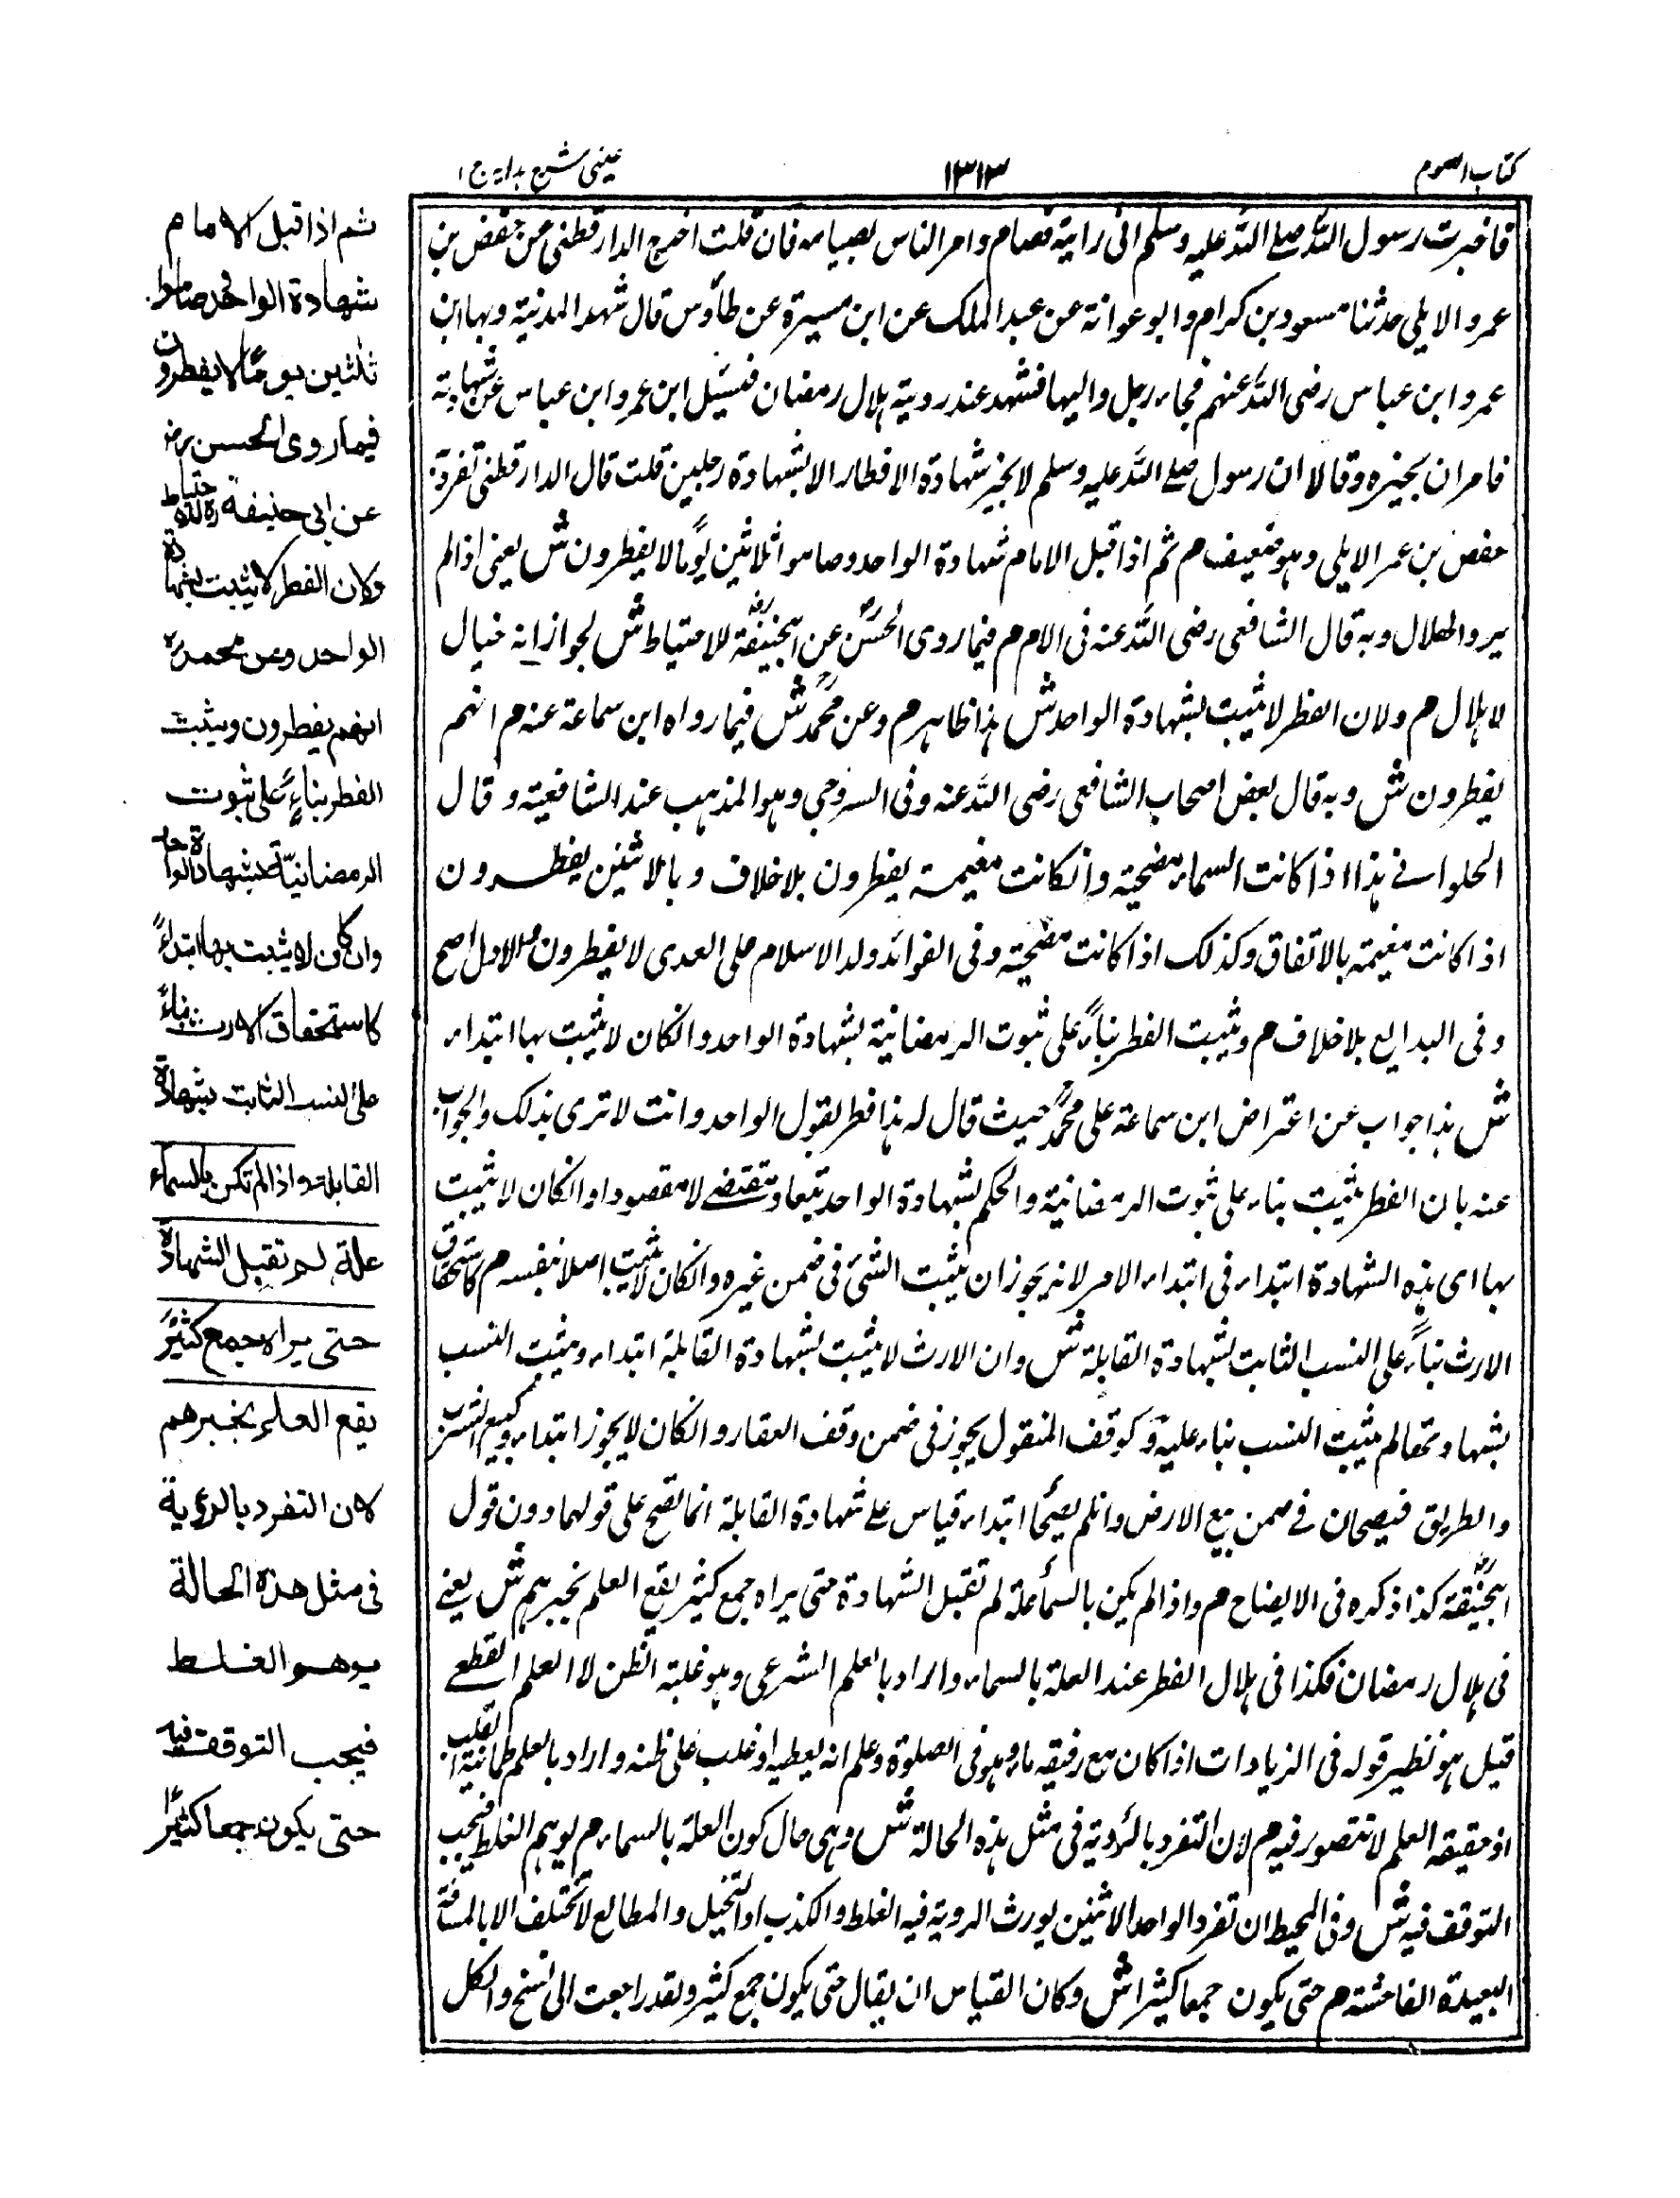 كتاب الصوم
١٣١٣
عينى شرح هدايه ج ١
فاخبرت رسول الله صلے الله عليه وسلم انى رايته فصام وامر الناس بصيامه فان قلت اخرج الدارقطنى من حفص بن
عمرو الايلى حدثنا مسعود بن كرام وابو عوانة عن عبد الملك عن ابن ميسرة عن طاؤس قال شهد المدينة وبها ابن
عمرو ابن عباس رضى الله عنهم فجاء رجل واليها فشهد عند روية هلال رمضان فسئيل ابن عمرو ابن عباس عن شهادته
فامران يجيزه وقالا ان رسول صلے الله عليه وسلم لا يجيز شهادة الافطار الا بشهادة رجلين قلت قال الدارقطنى تفرد به
حفص بن عمر الايلى وهو ضعيف م ثم اذا قبل الامام شهادة الواحد وصاموا ثلاثين يوًما لا يفطرون ش يعنى اذا لم
يروا الهلال وبه قال الشافعى رضى الله عنه فى الام م فيما روى الحسن عن ابيحنيفة للاحتياط ش لجواز انه خيال
لا هلال م ولان الفطر لا يثبت بشهادة الواحد ش هذا ظاهر م وعن محمد ش فيما رواه ابن سماعة عنه م انهم
يفطرون ش وبه قال بعض اصحاب الشافعى رضى الله عنه وفى السروجى وهو المذهب عند الشافعية وقال
الحلوانى فے هذا اذا كانت السماء مضحية وانكانت مغيمة يفطرون بلا خلاف وبالاثنين يفطرون
اذا كانت مغيمة بالاتفاق وكذلك اذا كانت مضحية وفى الفوائد ولد الاسلام على العدى لا يفطرون والاول اصح
وفى البدايع بلا خلاف م ويثبت الفطر بناءً على ثبوت الرمضانية بشهادة الواحد وانكان لا يثبت بها ابتداء
ش هذا جواب عن اعتراض ابن سماعة على محمد حيث قال له هذا فطر بقول الواحد وانت لا ترى بذلك والجواب
عنه بان الفطر يثبت بناء على ثبوت الرمضانية والحكم بشهادة الواحد تبعا ومقتضے لا مقصودا وانكان لا يثبت
بها اى بهذه الشهادة ابتداء فى ابتداء الامر لانه يجوز ان يثبت الشئ فى ضمن غيره وانكان لا يثبت اصلا بنفسه م كاستحقاق
الارث بناءً على النسب الثابت بشهادة القابلة ش وان الارث لا يثبت بشهادة القابلة ابتداء ويثبت النسب
بشهادتها لم يثبت النسب بناء عليه وكوقف المنقول يجوز فى ضمن وقف العقار وانكان لا يجوز ابتداء وكبيع الشرب
والطريق فيصحان فے ضمن بيع الارض وانلم يصحا ابتداء قياس على شهادة القابلة انما تصح على قولهما دون قول
ابيحنيفة كذا ذكره فى الايضاح م واذا لم يكن بالسماء علة لم تقبل الشهادة حتى يراه جمع كثير يقع العلم بخبرهم ش يعنے
فى هلال رمضان فكذا فى هلال الفطر عند العلة بالسماء واراد بالعلم الشرعى وهو غلبة الظن لا العلم القطعے
قيل هو نظير قوله فى الزيادات اذا كان مع رفيقه ماء وهو فى الصلوة وعلم انه يعطيه او غلب على ظنه واراد بالعلم طمانية القلب
اذ حقيقة العلم لا تتصور فيه م لان التفرد بالروية فى مثل هذه الحالة ش وهى حال كون العلة بالسماء م يوهم الغلط فيجب
التوقف فيه ش وفى المحيط ان تفرد الواحد الاثنين يورث الروية فيه الغلط والكذب او التخيل والمطالع لا تختلف الا بالمسافة
البعيدة الفاحشة م حتى يكون جمعا كثيرا ش وكان القياس ان يقال حتى يكون جمع كثير ولقد راجعت الى نسخ والكل
ثم اذا قبل الامام
شهادة الواحد وصاموا
ثلثين يومًا لا يفطرون
فيما روى الحسن رح
عن ابى حنيفة رح للاحتياط
وكان الفطر لا يثبت بشهادة
الواحد وعن محمد رح
انهم يفطرون ويثبت
الفطر بناءً على ثبوت
الرمضانيّة بشهادة الواحد
وان كان لا يثبت بها ابتداءً
كاستحقاق الارث بناءً
على النسب الثابت بشهادة
القابلة واذا لم تكن بالسماء
علة لم تقبل الشهادة
حتى يراه جمع كثيرً
يقع العلم بخبرهم
لان التفرد بالرؤية
فى مثل هذه الحالة
يوهم الغلط
فيجب التوقف فيه
حتى يكون جمعا كثيرًا